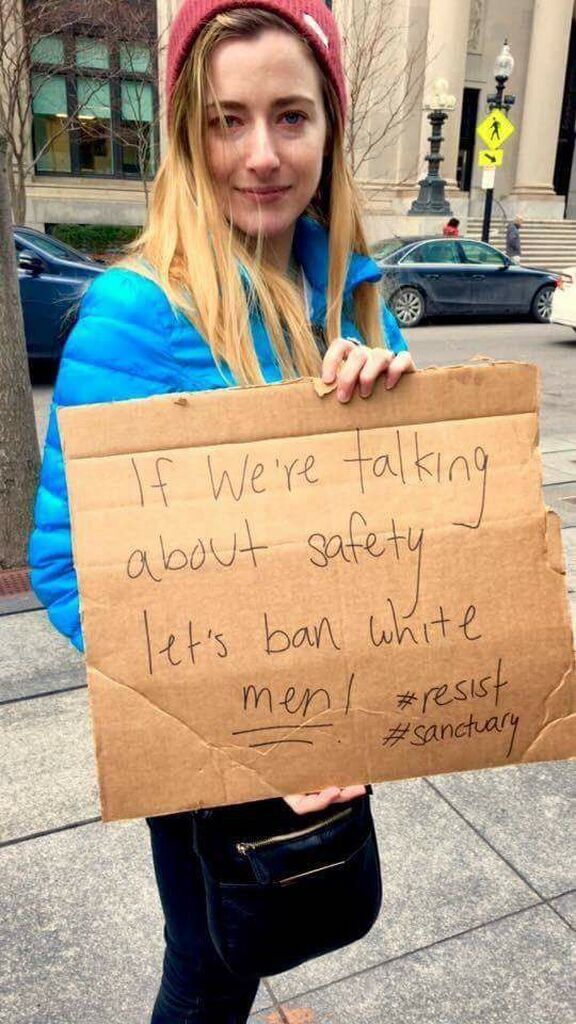 If we're talking
about safety
let's ban white
men! #resist
#sanctuary